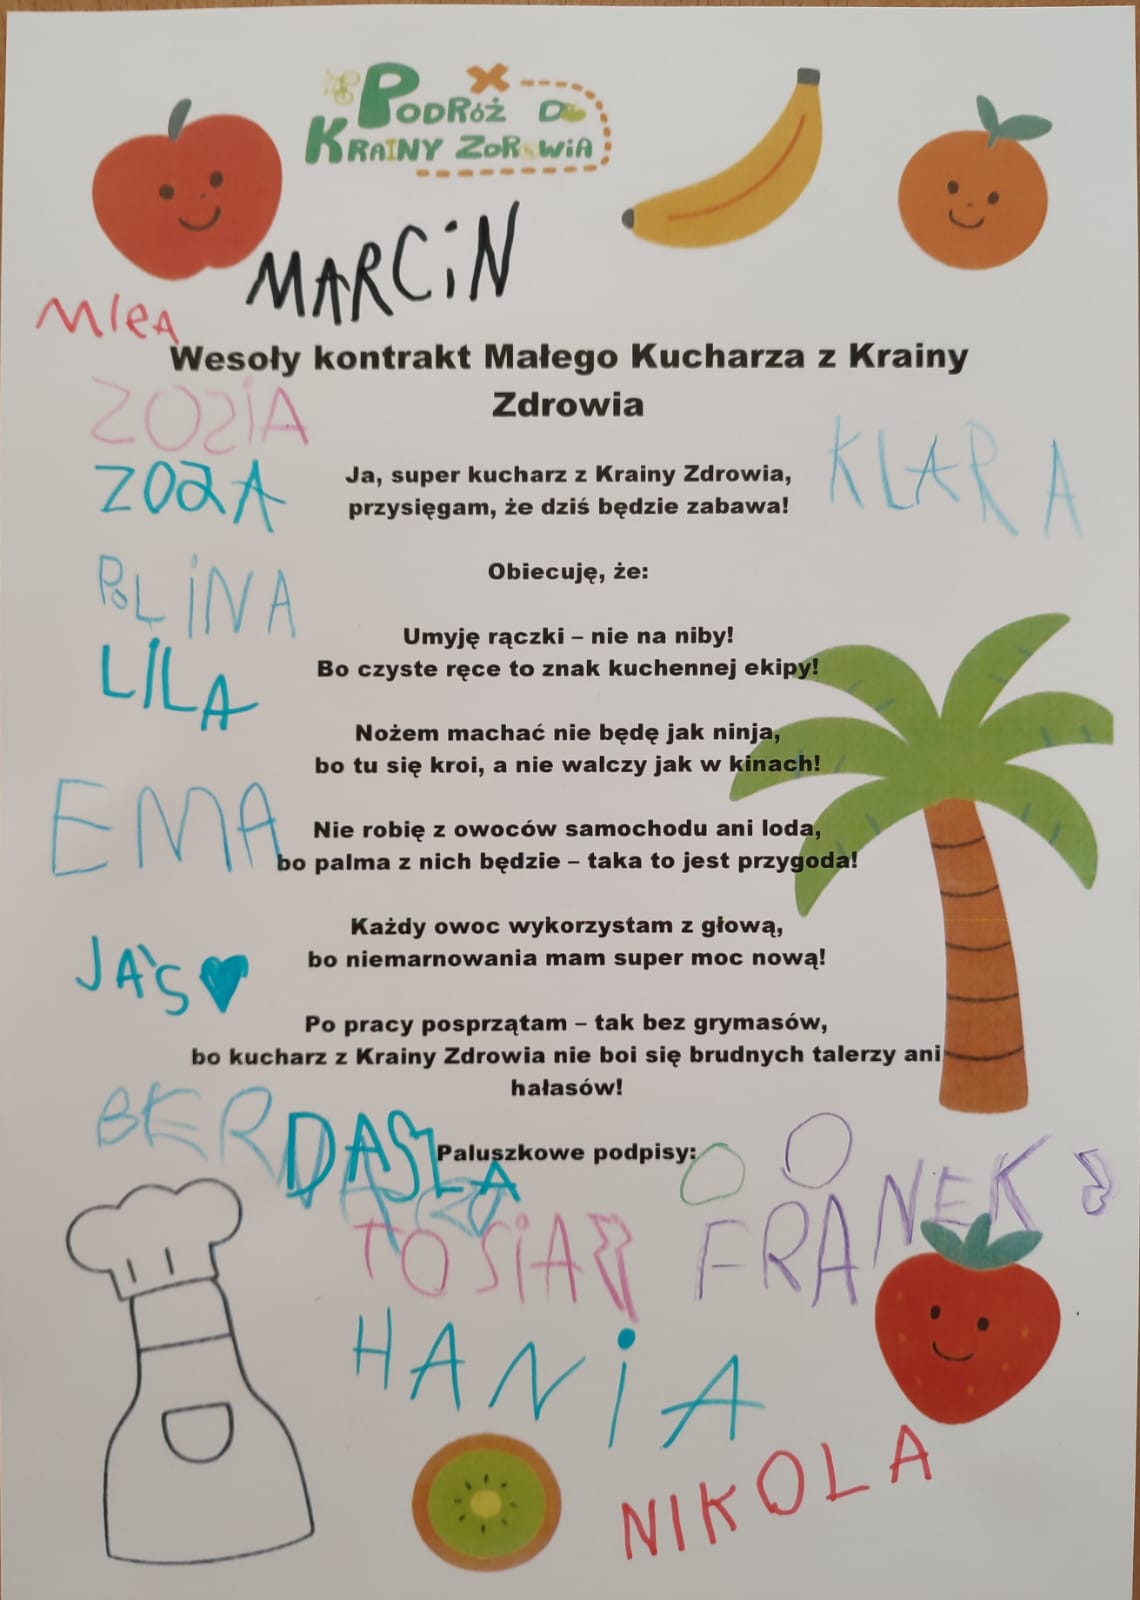 PODRÓŻ DO
KRAINY ZDROWIA
MARCIN
Wesoły kontrakt Małego Kucharza z Krainy
Zdrowia
ZOSIA
KLARA
Ja, super kucharz z Krainy Zdrowia,
przysięgam, że dziś będzie zabawa!
POLINA
Obiecuję, że:
LILA
Umyję rączki – nie na niby!
Bo czyste ręce to znak kuchennej ekipy!
Nożem machać nie będę jak ninja,
bo tu się kroi, a nie walczy jak w kinach!
EMA
Nie robię z owoców samochodu ani loda,
bo palma z nich będzie – taka to jest przygoda!
Każdy owoc wykorzystam z głową,
bo niemarnowania mam super moc nową!
JAŚ
Po pracy posprzątam – tak bez grymasów,
bo kucharz z Krainy Zdrowia nie boi się brudnych talerzy ani
hałasów!
Paluszkowe podpisy:
TOSIA
FRANEK
HANIA
NIKOLA